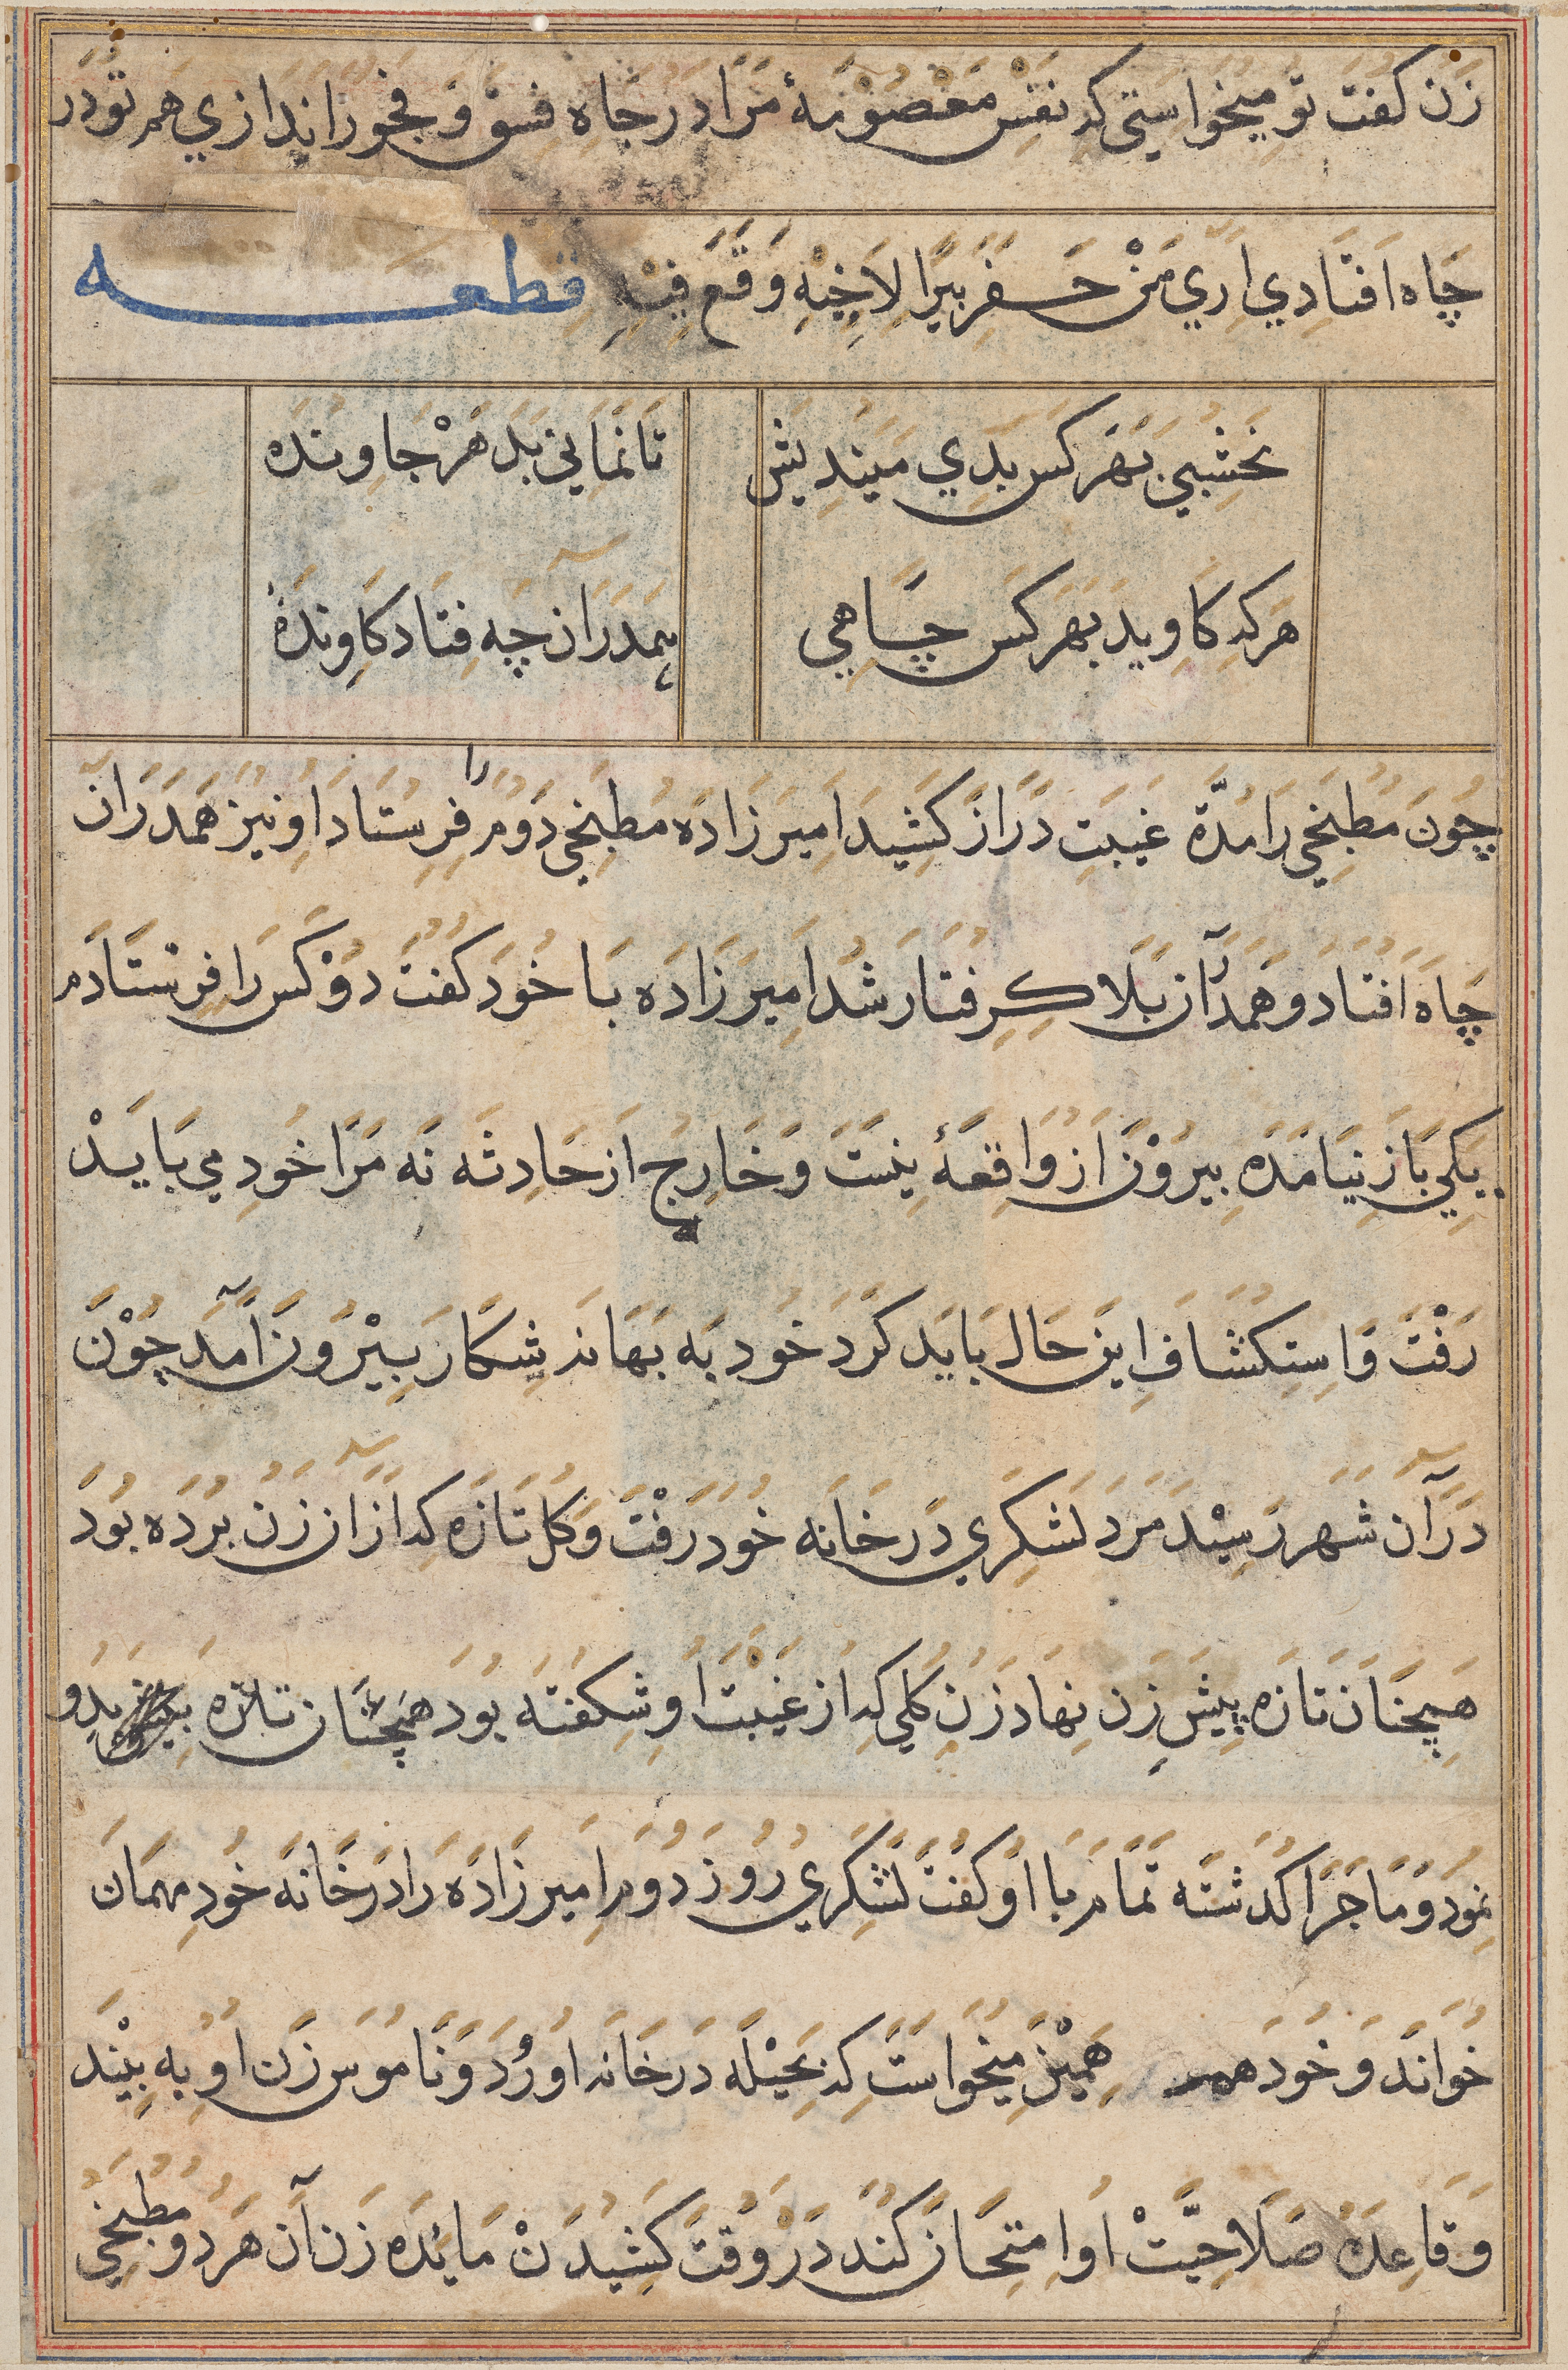 زن کفت تو میخواستی که نفس معصومهٔ مرا در چاه فسق و فجور اندازي هم تو در
چاه افتادي اري من حفر بیرا لاخیه وقع فیه قطعه
نخشبي بهر کس بدي میندیش تا نماني بد هر جاونده
هر که کاوید بهر کس چاهي همدران چه فتاد کاونده
چون مطبخي را مدة غیبت دراز کشید امیرزاده مطبخي دوم را فرستاد او نیز همدران
چاه افتاد و همدران بلا کرفتار شد امیرزاده با خود کفت دو کس را فرستادم
یکي باز نیامده بیرون از واقعهٔ نیست و خارج از حادثه نه مرا خود مي باید
رفت و استکشاف این حال باید کرد خود به بهانه شکار بیرون آمد چون
در آن شهر رسید مرد لشکري در خانه خود رفت و کل تازه که ازان زن برده بود
همچنان تازه پیش زن نهاد زن کلي که از غیبت او شکفته بود همچنان تازه بدو
نمود و ماجرا کدشته تمام با او کفت لشکري روز دوم امیرزاده را در خانه خود مهمان
خواند و خود همین میخواست که بحیله در خانه او رود و ناموس زن او به بیند
و قاعده صلاحیت او امتحان کند در وقت کشیدن مائده زن آن هر دو مطبخي